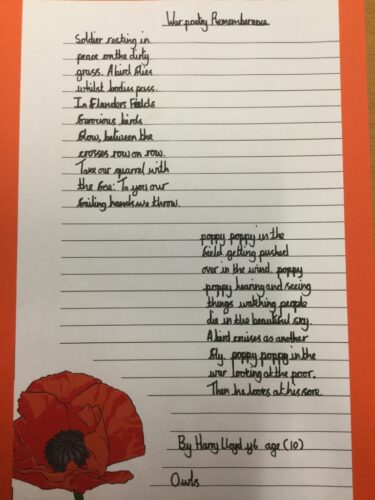 War poetry Rememberence
Soldier resting in
peace on the dirty
grass. A bird flies
whilst bodies pass.
In Flanders Fields
ferocious birds
flow, between the
crosses row on row.
Take our quarrel with
the foe: To you our
failing hands we throw.
poppy poppy in the
field getting pushed
over in the wind. poppy
poppy hearing and seeing
things watching people
die in the beautiful sky.
A bird cruises as another
fly. poppy poppy in the
war looking at the poor.
Then he looks at his sore.
By Harry Lloyd y6 age (10)
Owls